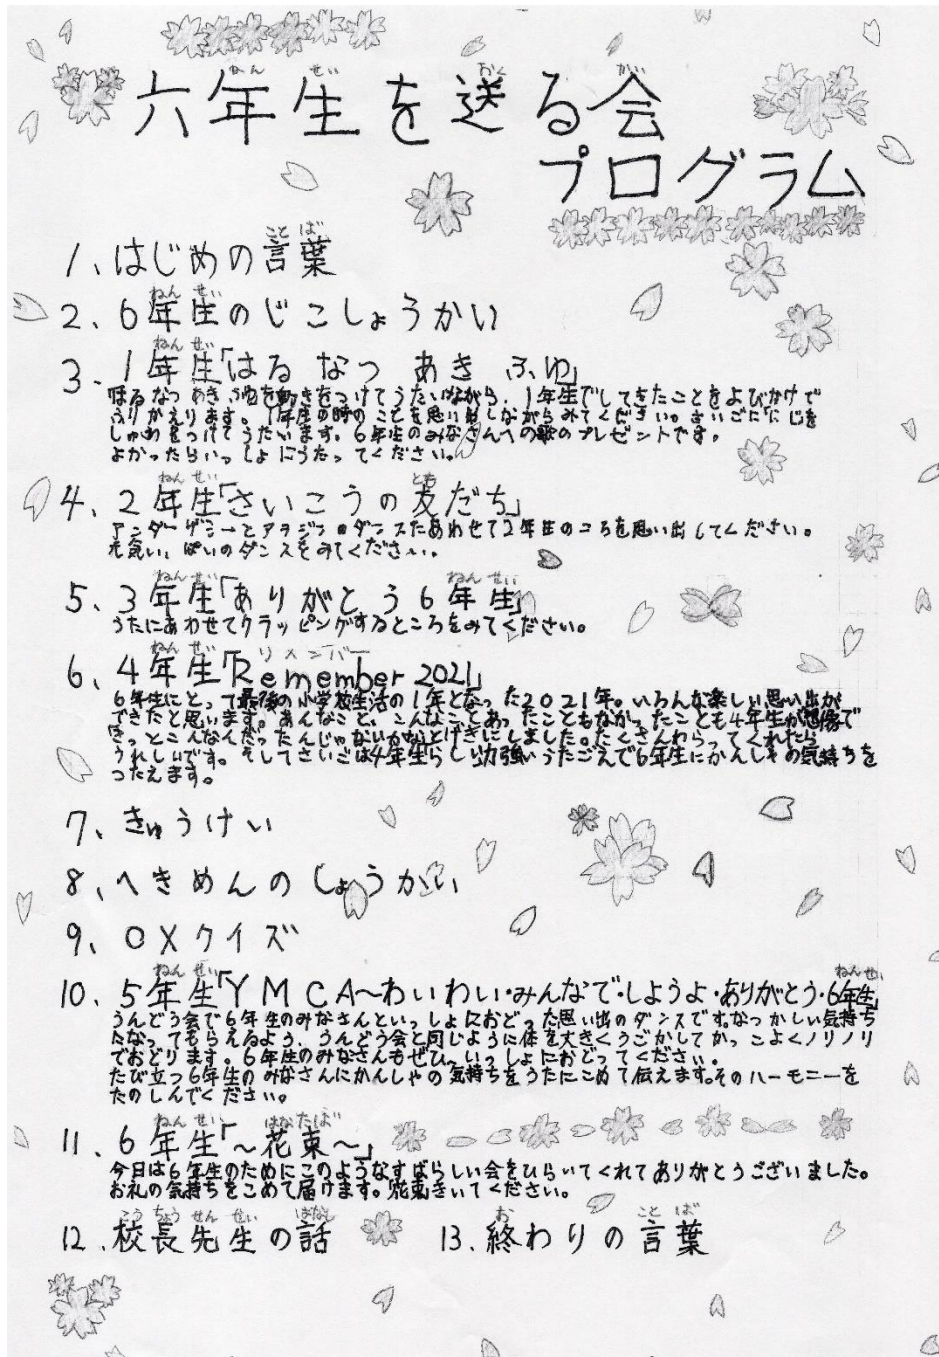 六年生を送る会
プログラム
1、はじめの言葉
2、6年生のじこしょうかい
3、1年生「はる なつ あき ふゆ」
はる なつ あき ふゆを動きをつけてうたいながら、1年生でしてきたことをよびかけで
ふりかえります。1年生の時のことを思い出しながらみてください。さいごに「にじ」を
しゅわをつけてうたいます。6年生のみなさんへの歌のプレゼントです。
よかったらいっしょにうたってください。
4、2年生「さいこうの友だち」
アンダーザシーとアラジンのダンスにあわせて2年生のころを思い出してください。
元気いっぱいのダンスをみてください。
5、3年生「ありがとう6年生」
うたにあわせてクラッピングするところをみてください。
6、4年生「Remember 2021」
6年生にとって最後の小学校生活の1年となった2021年。いろんな楽しい思い出が
できたと思います。あんなこと、こんなこと、あったこともなかったことも4年生が想像で
きっとこんなんだったんじゃないかなとげきにしました。たくさんわらってくれたら
うれしいです。そしてさいごは4年生らしい力強いうたごえで6年生にかんしゃの気持ちを
つたえます。
7、きゅうけい
8、へきめんのしょうかい
9、○×クイズ
10、5年生「YMCA～わいわい・みんなで・しようよ・ありがとう・6年生」
うんどう会で6年生のみなさんといっしょにおどった思い出のダンスです。なつかしい気持ち
になってもらえるよう、うんどう会と同じように体を大きくうごかしてかっこよくノリノリ
でおどります。6年生のみなさんもぜひ、いっしょにおどってください。
たび立つ6年生のみなさんにかんしゃの気持ちをうたにこめて伝えます。そのハーモニーを
たのしんでください。
11、6年生「～花束～」
今日は6年生のためにこのようなすばらしい会をひらいてくれてありがとうございました。
お礼の気持ちをこめて届けます。花束きいてください。
12、校長先生の話 13、終わりの言葉